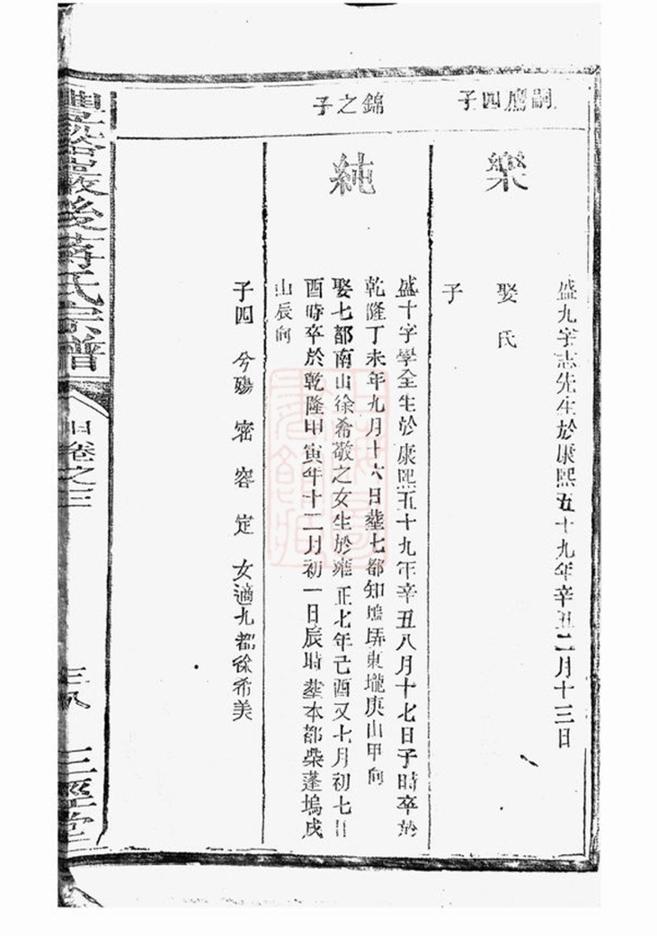 嗣鷹四子
樂
盛九字志先生於康熙五十九年辛丑二月十三日
娶氏
子
錦之子
純
盛十字學全生於康熙五十九年辛丑八月十七日子時卒於
乾隆丁未年九月十六日塟七都知塢㺯東壠庚山甲向
娶七都南山徐希敬之女生於雍正七年己酉又七月初七日
酉時卒於乾隆甲寅年十二月初一日辰時塟本都柴蓬塢戌
山辰向
子四 兮殤 密 容 定 女適九都徐希美
後蔣氏宗譜
卷之三
三徑堂